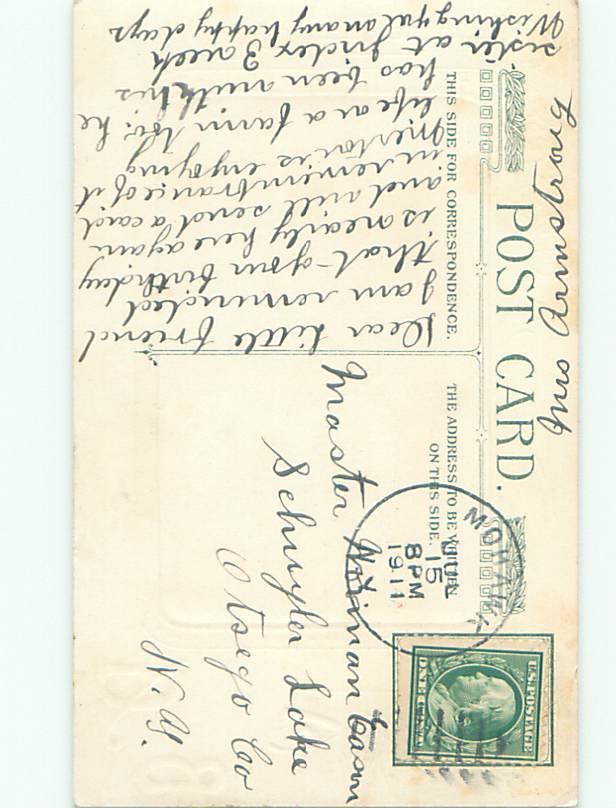 POST CARD.
THIS SIDE FOR CORRESPONDENCE.
THE ADDRESS TO BE WRITTEN
ON THIS SIDE.
Dear little friend
I am reminded
that your birthday
is nearly here again
and will send a card
in remembrance of it
Merton is enjoying
life on a farm too. he
has been with his
sister at Index 3 week
Wishing you many happy days
Mrs Armstrong
MOHAWK
JUL
15
8 PM
1911
U.S. POSTAGE
ONE CENT
Master Norman Eason
Schuyler Lake
Otsego Co
N.Y.